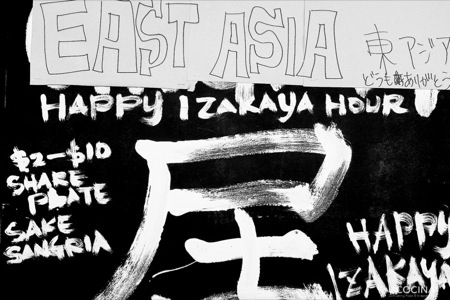 EAST ASIA
東アジア
どうもありがとう
HAPPY IZAKAYA HOUR
$2-$10
SHARE
PLATE
SAKE
SANGRIA
HAPPY
IZAKAYA